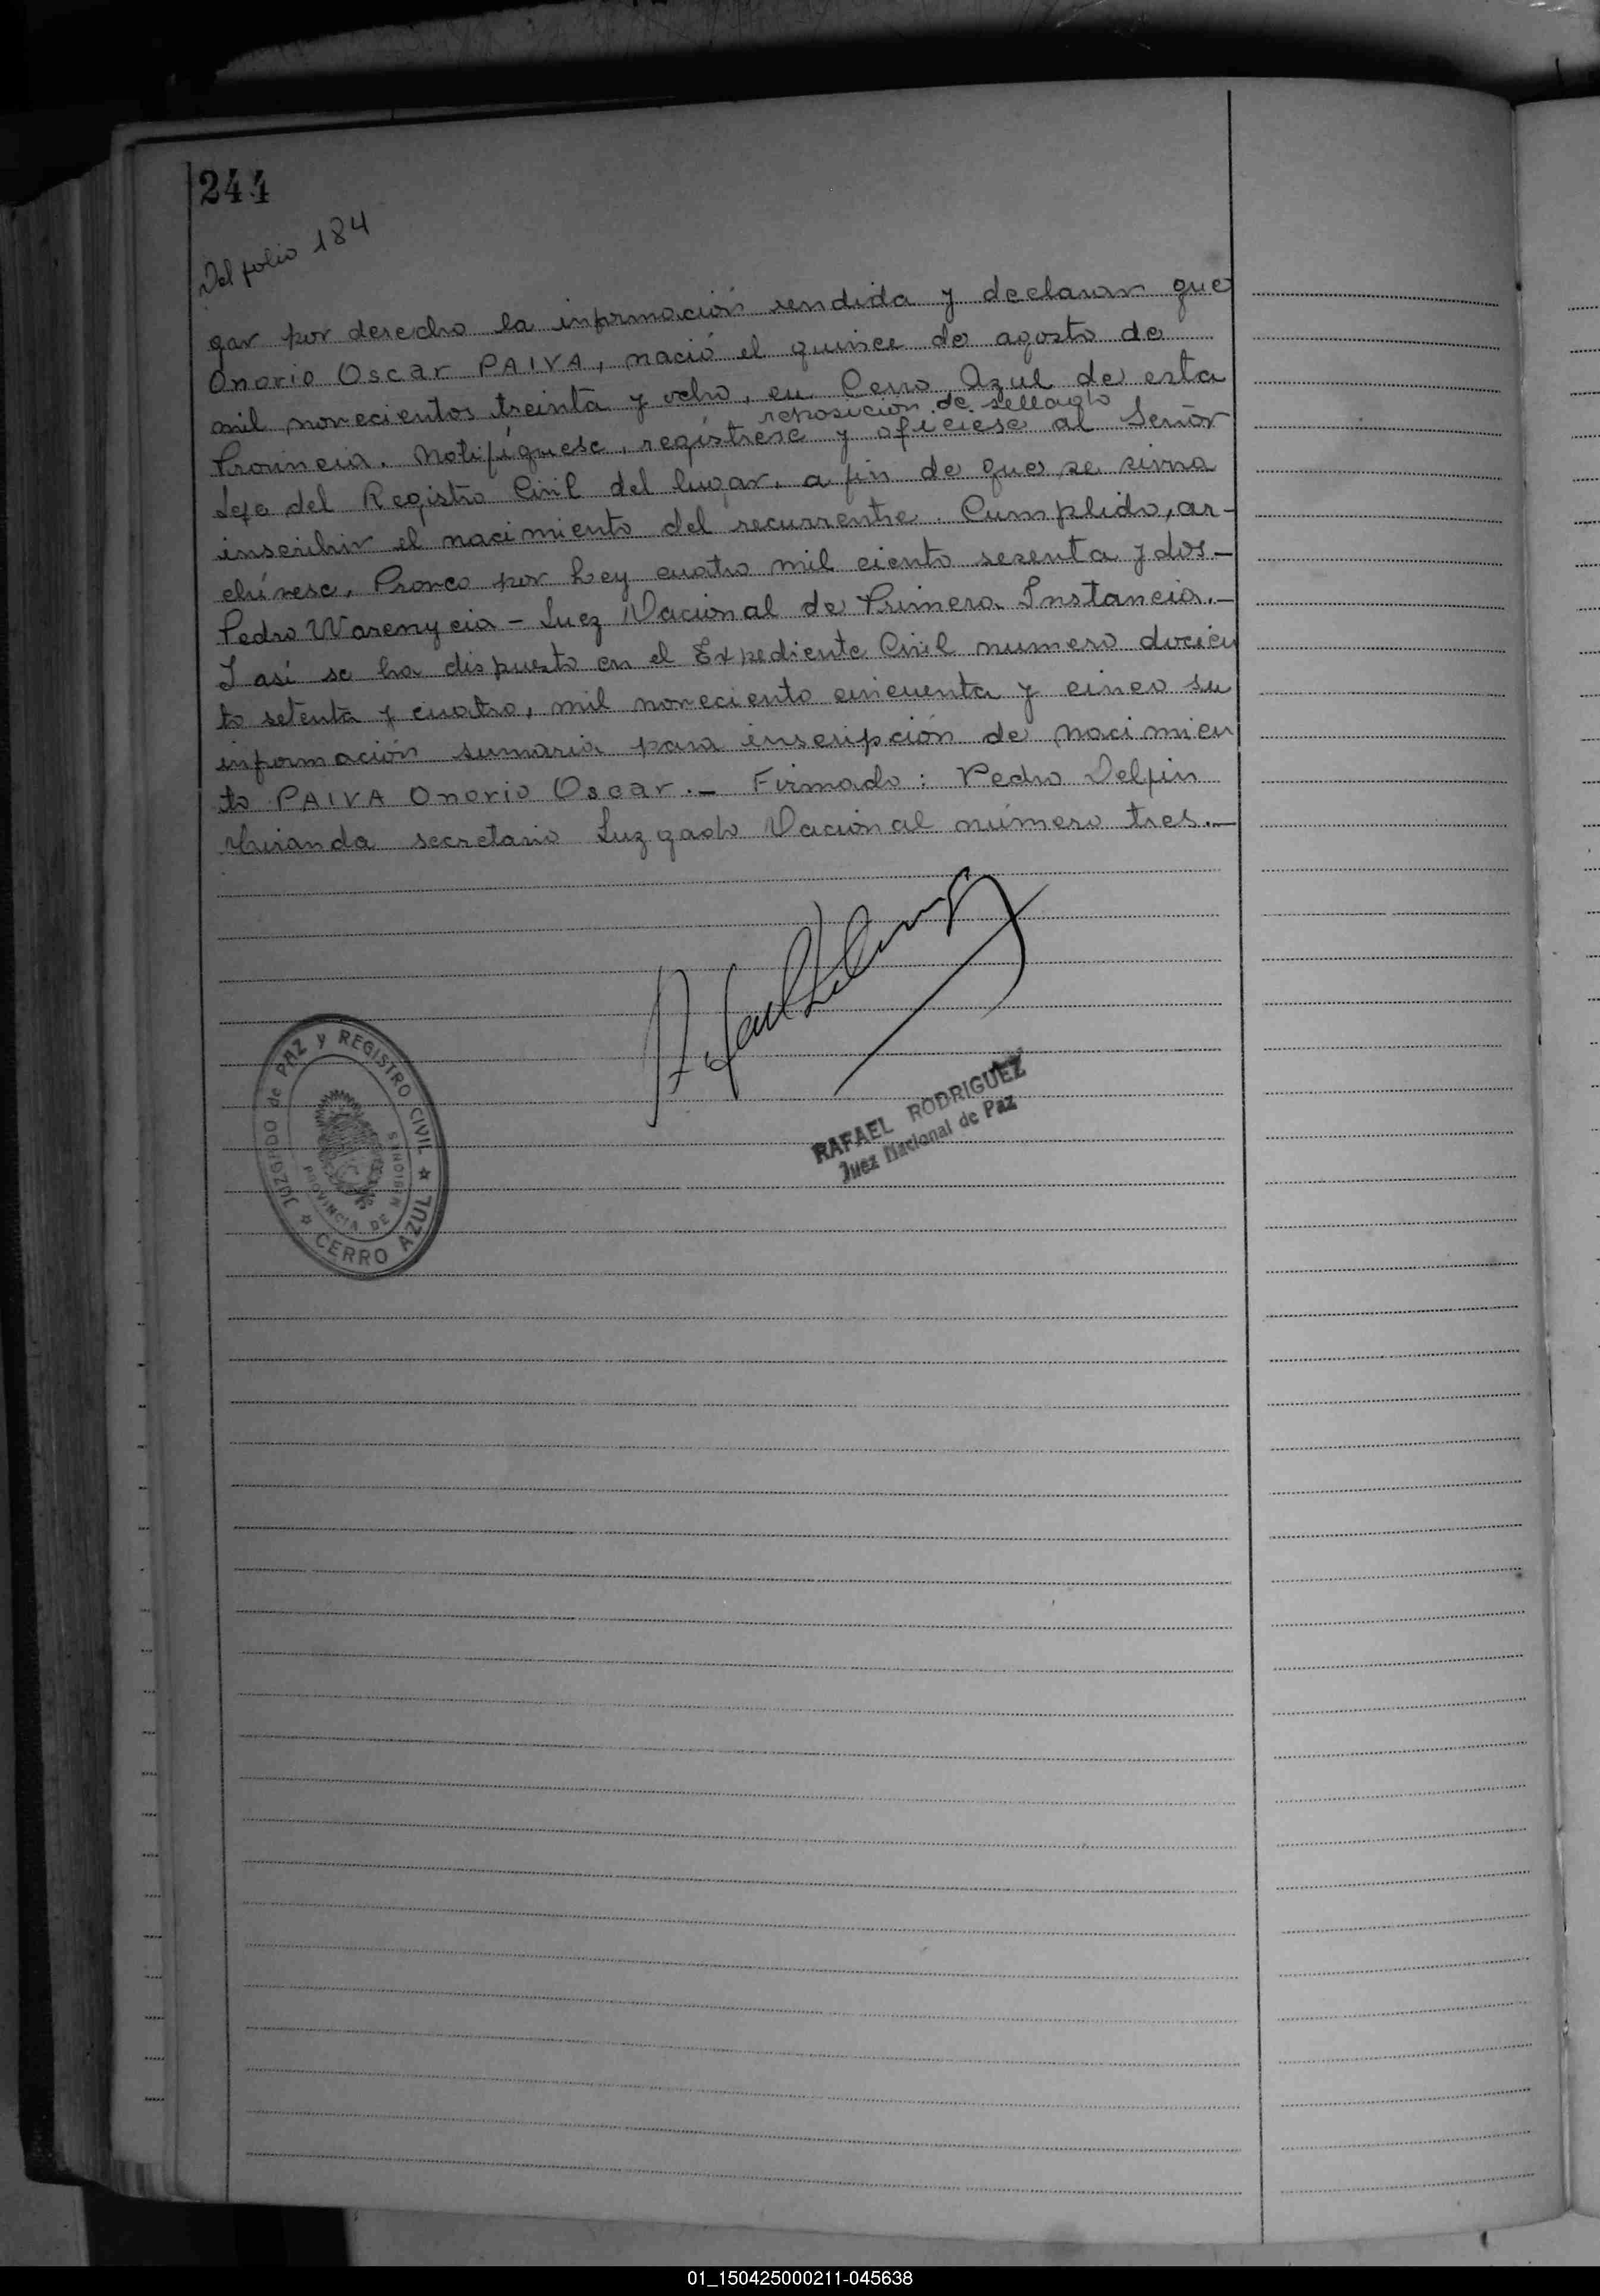 244
Del folio 184
gar por derecho la información rendida y declarar que
Onorio Oscar PAIVA, nació el quince de agosto de
mil novecientos treinta y ocho, en Cerro Azul de esta
reposicion de sellado
Provincia. Notifíquese, regístrese y ofíciese al Señor
Jefe del Registro Civil del lugar, a fin de que se sirva
inscribir el nacimiento del recurrente. Cumplido, ar-
chívese. Proveo por Ley cuatro mil ciento sesenta y dos-
Pedro Warenycia - Juez Nacional de Primera Instancia.-
I así se ha dispuesto en el Expediente Civil numero docien
to setenta y cuatro, mil noveciento cincuenta y cinco su
información sumaria para inscripción de nacimien
to PAIVA Onorio Oscar.- Firmado: Pedro Delfin
Miranda secretario Juzgado Nacional número tres.-
JUZGADO de PAZ y REGISTRO CIVIL
CERRO AZUL
PROVINCIA DE MISIONES
RAFAEL RODRIGUEZ
Juez Nacional de Paz
01_150425000211-045638